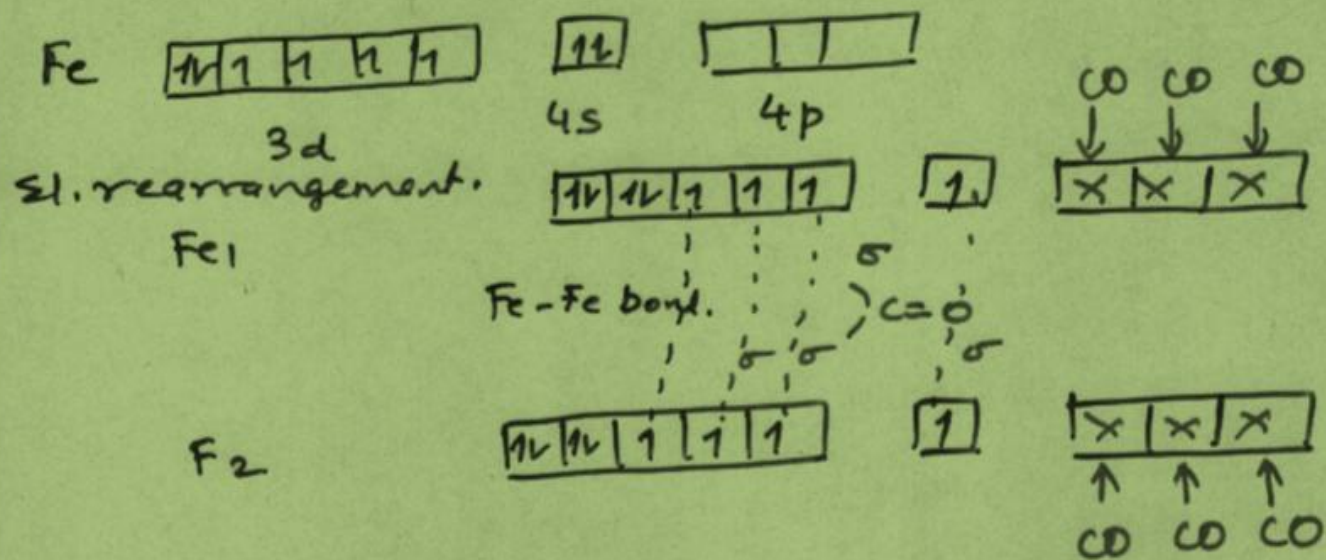 Fe 1↓ 1 1 1 1 1↓
3d 4s 4p
CO CO CO
El. rearrangement. 1↓ 1↓ 1 1 1 1 × × ×
Fe1
Fe-Fe bond. σ
C=O
σ σ σ
F2 1↓ 1↓ 1 1 1 1 × × ×
CO CO CO